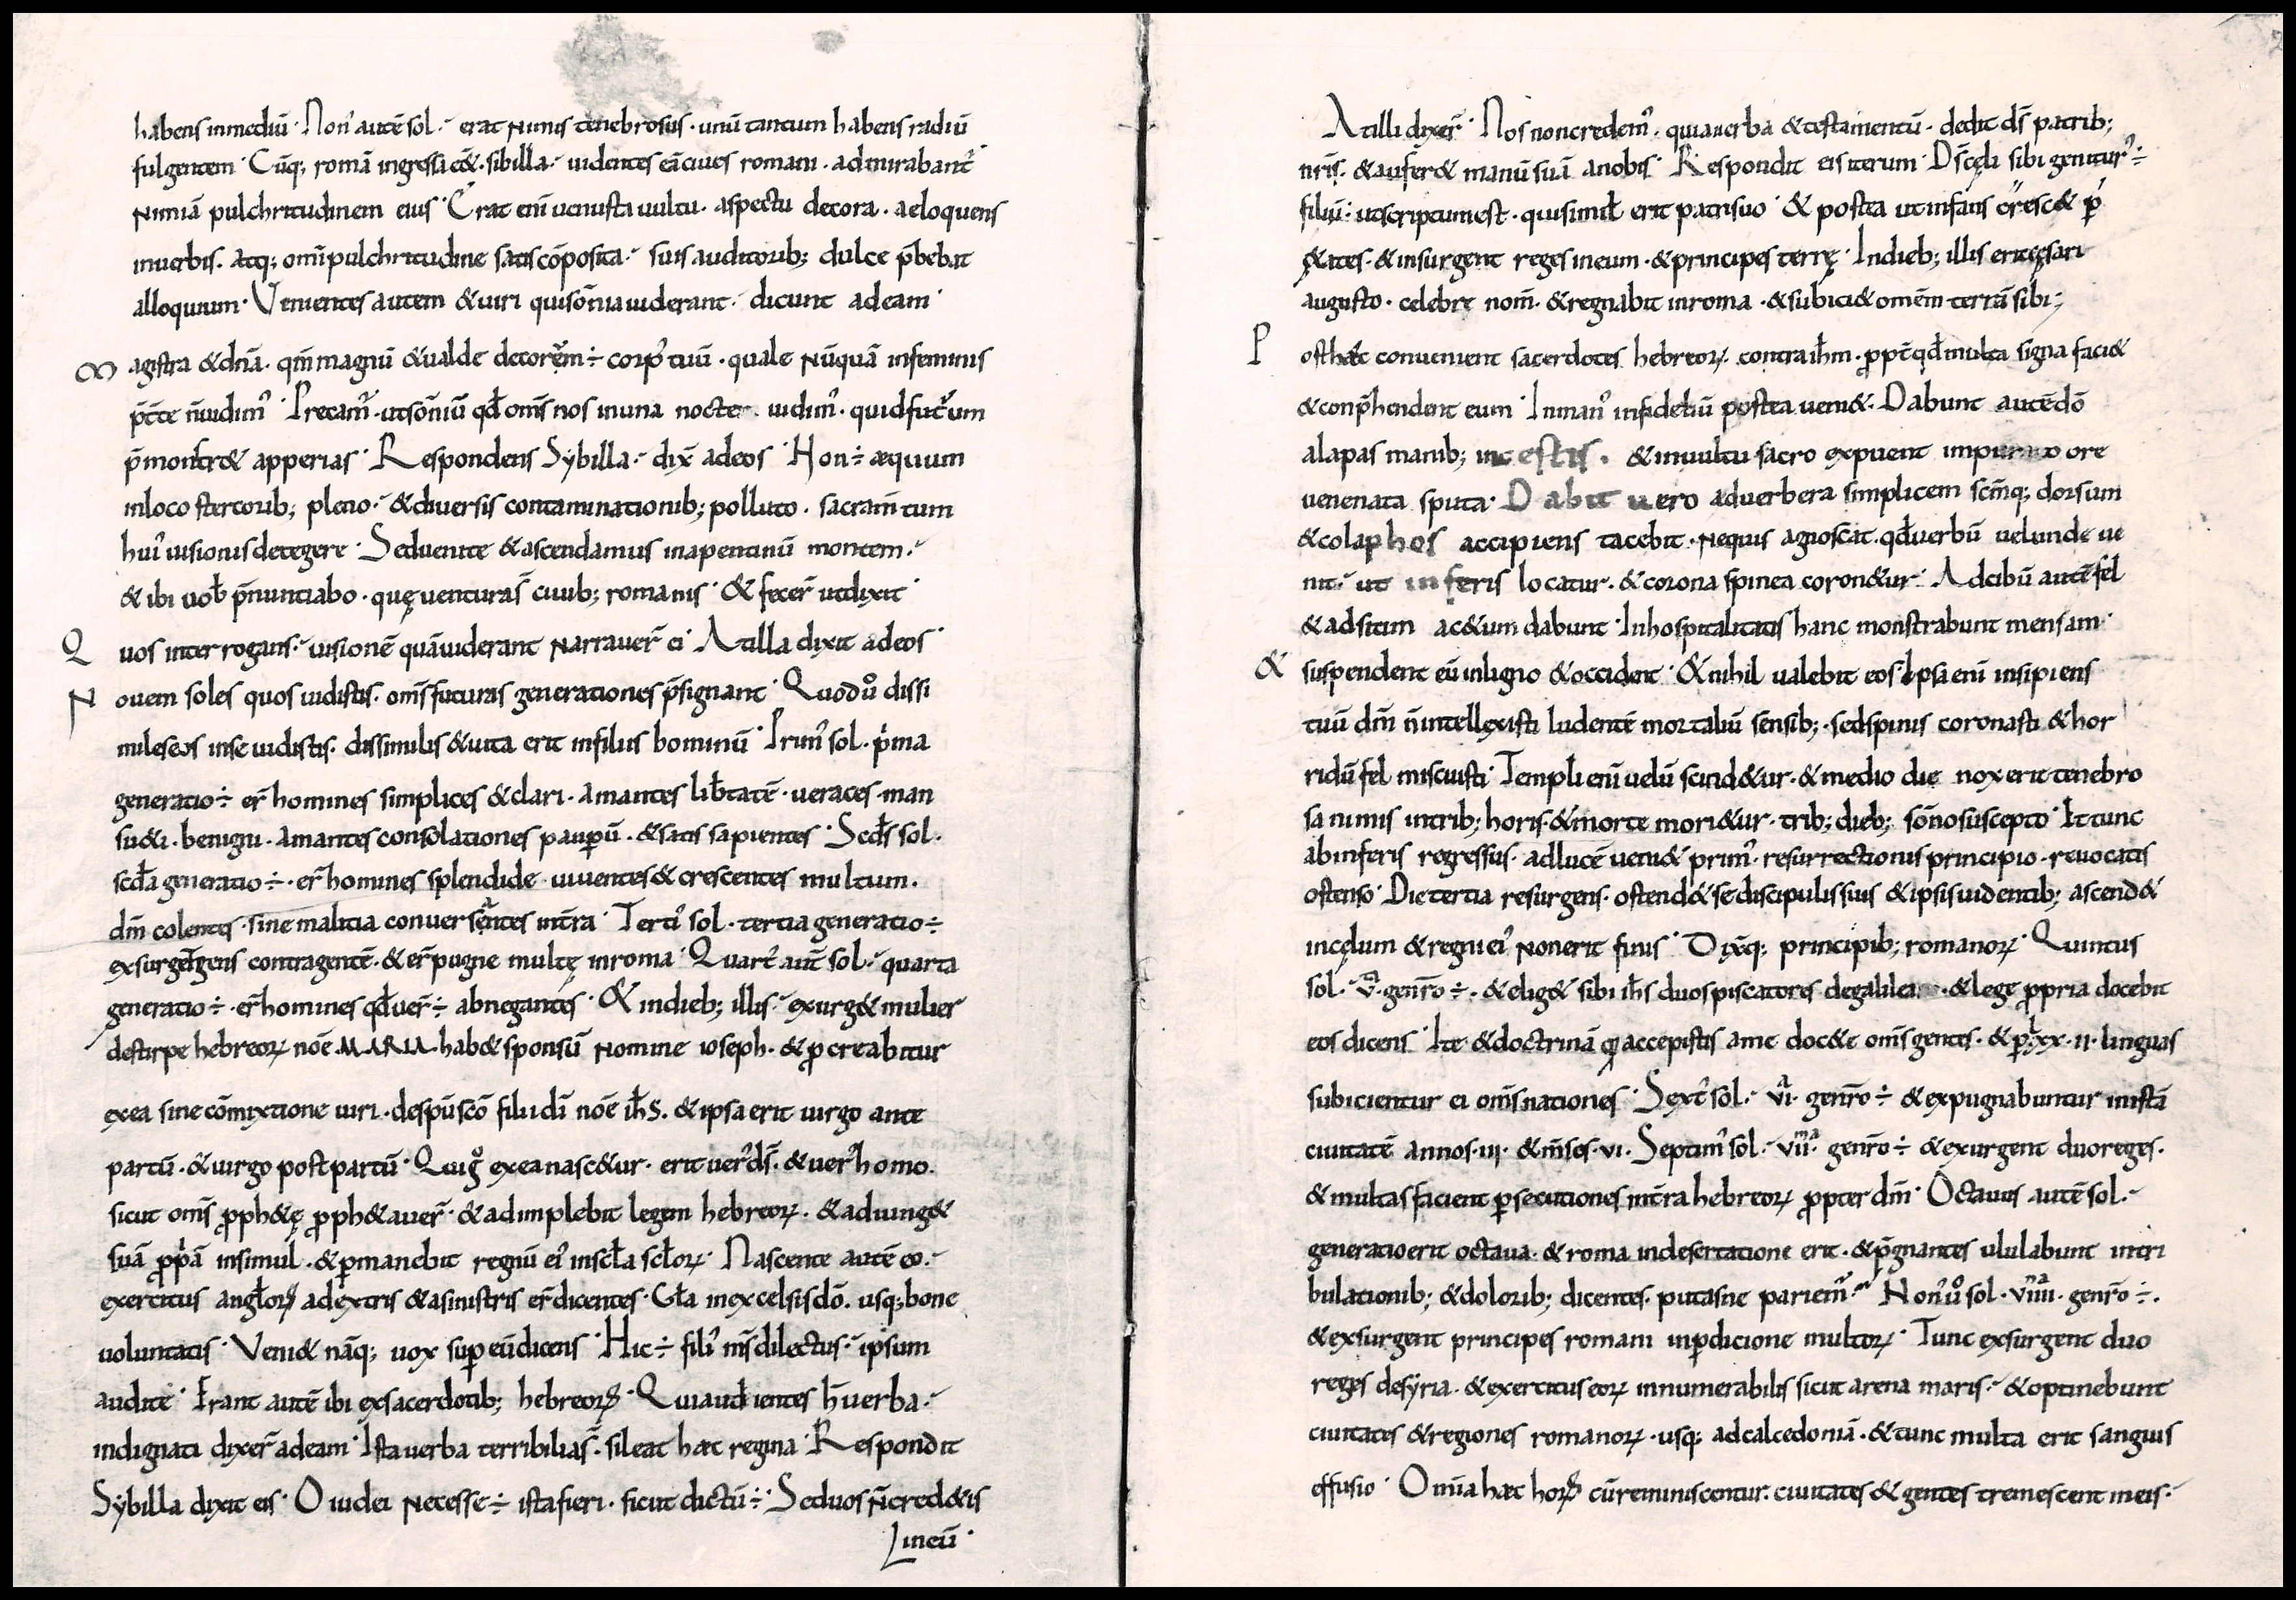 habens inmediū· Non' autē sol·- erat Nimis tenebrosus· unū tantum habens radiū
fulgentem· Cūq; romā ingressa eēt·sibilla·- uidentes eā ciues romani· admirabant'
Nimiā pulchritudinem eius· Erat enī uenusta uultu· aspectu decora· aeloquens
inuerbis· atq; omī pulchritudine satis cōposita·- suis auditorib; dulce p̄bebat
alloquium· Venientes autem &uiri quisōnia uiderant·- dicunt adeam·
Magistra &dn̄a· qm̄ magnū &ualde decorēm÷ corp' tuū· quale Nūquā infeminis
p̄t̄te n̄uidim'· Precam'· utsōniū qd̄ omīs nos inuna nocte uidim'· quidfut'um
p̄monstr& apperias· Respondens Sybilla·- dix̄ adeos· Non÷ æquum
inloco stercorib; pleno·- &diuersis contaminationib; polluto· sacram̄tum
hui' uisionis detegere· Seduenite &ascendamus inapenninū montem·-
& ibi uob̄ p̄nuntiabo· quę uentura s̄ ciuib; romanis· & fecer̄ utdixit·
Quos interrogans·- uisionē quā uiderant Narrauer̄ ei· At illa dixit adeos·
Nouem soles quos uidistis· omīs futuras generationes p̄signant· Quod ů dissi
mileseos inse uidistis· dissimilis &uita erit infilius hominū· Prim' sol· p'ma
generatio÷ er̄ homines simplices &clari· amantes lib̄tatē· ueraces· man
su&i· benigni· amantes consolationes paup̱ū· &satis sapientes· Scd̄s sol·
scd̄a generatio÷· er̄ homines splendide uiuentes& crescentes multum·
dm̄ colentes· sine malitia conuersantes int̄ra· Terti' sol· tertia generatio÷
exsurget gens contragentē· &er̄ pugne multę inroma· Quart' aut̄ sol·- quarta
generatio÷· er̄ homines qd̄ uer̄÷ abnegantes· & indieb; illis·- exurg& mulier
destirpe hebreoꝝ nōe·MARIA· hab& sponsū Nomine ioseph· &ꝓcreabitur
exea sine cōmixtione uiri· despū scō filius dī nōe ih̄s· &ipsa erit uirgo ante
partū· &uirgo post partū· Quig̊ exea nasc&ur· erit uer' ds̄· &uer' homo·
sicut omīs ꝓph&ę ꝓph&auer̄· &adimplebit legem hebreoꝝ· &adiung&
suā ꝓp'ā insimul· &ꝑmanebit regnū ei' inscl̄a scl̄oꝝ· Nascente autē eo·-
exercitus angl̄oꝝ adextris &asinistris er̄ dicentes· Gl̄a inexcelsis dō· usq; bone
uoluntatis· Veni& nāq; uox suꝑ eū dicens· Hic÷ fili' m̄s dilectus·- ipsum
audite· Erant autē ibi exsacerdotib; hebreoꝝ· Qui audientes h̄ uerba·-
indignati dixer̄ adeam· Ista uerba terribilia s̄· sileat hæc regina· Respondit
Sybilla dixit eis· O iudei Necesse÷ ista fieri· sicut dictū÷· Sed uos n̄ cred&is
Lineū·
At illi dixer̄· Nos noncredem'· quia uerba &testamentū· dedit ds̄ patrib;
nr̄is· &aufer& manū suā anobis· Respondit eis iterum· Ds̄ cęli sibi genitur'÷
filiū· utscriptum est· quisimil̄ erit patrisuo· & postea ut infans cresc& p̱
&ates· &insurgent reges ineum· &principes terrę· Indieb; illis erit cęsari
augusto· celebre nom̄· &regnabit inroma· &subici& omēm terrā sibi;
Posthæc conuenient sacerdotes hebreoꝝ contra ih̄m· ꝓpt̄ qd̄ multa signa faci&
&conp̄hendent eum· Inman' infideliū postea ueni&· Dabunt autē dō
alapas manib; incestis· &inuultu sacro expuent impurato ore
uenenata sputa· Dabit uero aduerbera simplicem scm̄q; dorsum
&colaphos accipiens tacebit· Nequis agnoscat· qd̄ uerbū uelunde ue
nit·- ut inferis locatur· &corona spinea coron&ur· Adcibū autē fel
&adsitim ac&um dabunt· Inhospitalitatis hanc monstrabunt mensam·
& suspendent eū inligno &occident· &nihil ualebit eos· Ipsa enī insipiens
tuū dm̄ n̄ intellexisti ludentē mortaliū sensib;· sed spinis coronasti &hor
ridū fel miscuisti· Templi enī uelū scind&ur· &medio die nox erit tenebro
sa nimis intrib; horis· &morte mori&ur· trib; dieb; sōno suscepto· Et tunc
abinferis regressus· adlucē ueni& prim'· resurrectionis principio· reuocatis
ostenso· Die tertia resurgens· ostend& se discipulis suis &ipsis uidentib; ascend&
incęlum &regni ei' Nonerit finis· Dixq; principib; romanoꝝ· Quintus
sol·- v·genr̄o÷· &elig& sibi ih̄s duos piscatores degalilea· &lege ꝓpria docebit
eos dicens· Ite &doctrinā qꝫ accepistis ame doc&e omīs gentes· &ꝑ·lxx·ii·linguas
subicientur ei omīs nationes· Sext' sol·- vi· genr̄o÷ &expugnabuntur inistā
ciuitatē annos·iii· &m̄ses·vi· Septim' sol·- vii· genr̄o÷ &exurgent duo reges·
&multas facient ꝑsecutiones int̄ra hebreoꝝ ꝓpter dm̄· Octauus autē sol·-
generatio erit octaua· &roma indesertatione erit· &p̄gnantes ululabunt intri
bulationib; &dolorib; dicentes· putasne pariem'· Non'ů sol· viiii· genr̄o÷·
&exsurgent principes romani inꝑdicione multoꝝ· Tunc exsurgent duo
reges desÿria· &exercitus eoꝝ innumerabilis sicut arena maris·- &optinebunt
ciuitates &regiones romanoꝝ· usq; adcalcedoniā· &tunc multa erit sanguis
effusio· Omīa hæc hoꝝ cū reminiscentur· ciuitates & gentes tremescent ineis·